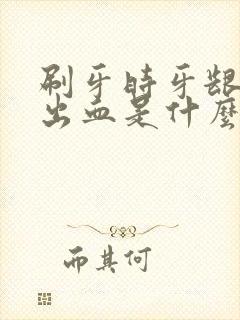 刷牙时牙龈
出血是什麼
而其何